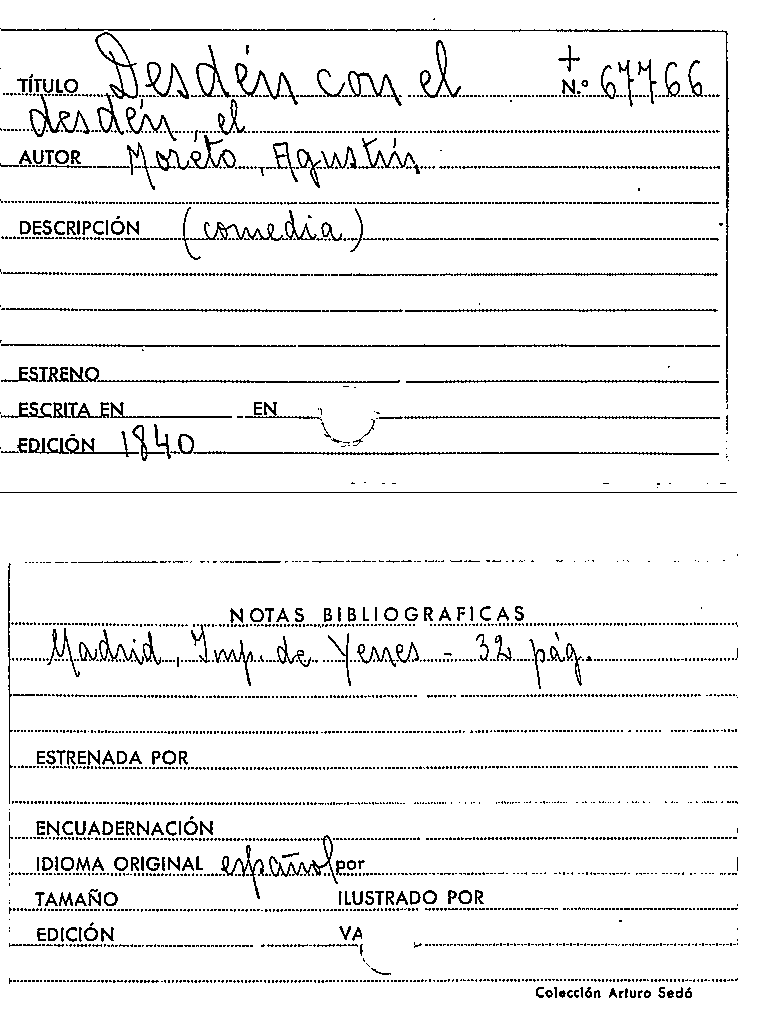 TÍTULO Desdén con el + N.º 67766
desdén, el
AUTOR Moreto, Agustín
DESCRIPCIÓN (comedia)
ESTRENO
ESCRITA EN EN
EDICIÓN 1840
NOTAS BIBLIOGRAFICAS
Madrid, Imp. de Yenes - 32 pág.
ESTRENADA POR
ENCUADERNACIÓN
IDIOMA ORIGINAL español por
TAMAÑO ILUSTRADO POR
EDICIÓN VA
Colección Arturo Sedó